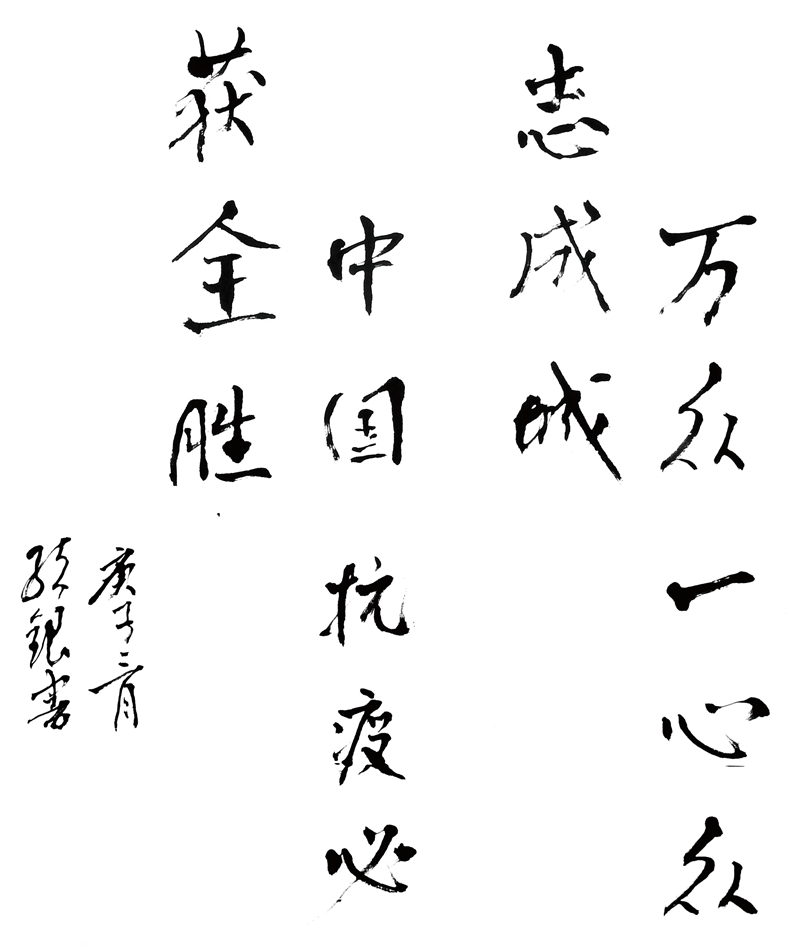 万众一心众
志成城
中国抗疫必
获全胜
庚子二月
银书